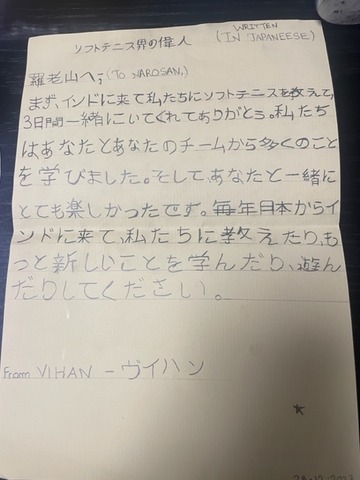 ソフトテニス界の偉人
WRITTEN
(IN JAPANEESE)
羅老山へ; (TO NAROSAN,)
まず、インドに来て私たちにソフトテニスを教えて、
3日間一緒にいてくれてありがとう。私たち
はあなたとあなたのチームから多くのこと
を学びました。そして、あなたと一緒に
とても楽しかったです。毎年日本からイ
ンドに来て、私たちに教えたり、も
っと新しいことを学んだり、遊ん
だりしてください。
From VIHAN - ヴイハン